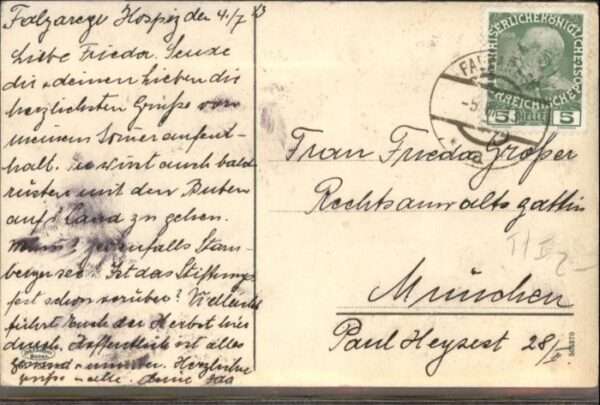 Falzarego Hospiz den 4./7. 13
Liebe Frieda. Sende
dir + deinen Lieben die
herzlichsten Grüße von
meinem Someraufent-
halt. Du wirst auch bald
rüsten mit den Buben
aufs Land zu gehen.
jedenfalls Starn-
bergersee? Ist das Stiftungs
fest schon vorüber? Vielleicht
führt Euch der Herbst hier
durch. Hoffentlich ist alles
gesund + munter. Herzliche
Grüße deine
KAISERLICHE KÖNIGLICHE ÖSTERREICHISCHE POST
5 HELLER 5
Frau Frieda Großer
Rechtsanwaltsgattin
München
Paul Heysest 28/